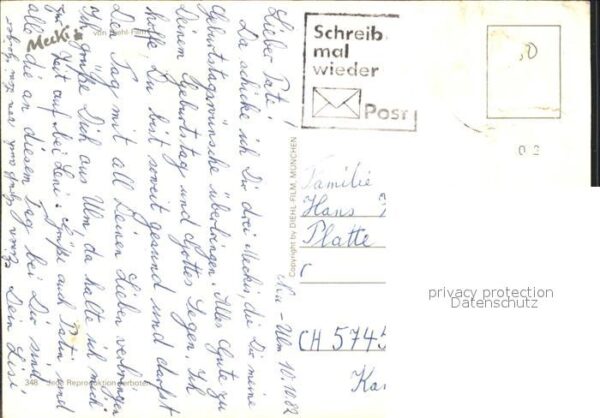 Neu-Ulm 10.10.82
Lieber Pate!
Da schicke ich Dir drei Meckis, die Dir meine
Geburtstagswünsche überbringen. Alles Gute zu
Deinem Geburtstag und Gottes Segen. Ich
hoffe, Du bist soweit gesund und darfst
Den Tag mit all Deinen Lieben verbringen
Ich grüße Dich aus Ulm, da halte ich mich
zur Zeit auf bei Leni. Grüße auch Patin und
alle die an diesem Tag bei Dir sind.
Dein Lisi
Mecki
von Diehl-Film
348 Jede Reproduktion verboten
Copyright by DIEHL-FILM, MÜNCHEN
Schreib
mal
wieder
Post
Familie
Hans
Platte
CH 5745
privacy protection
Datenschutz